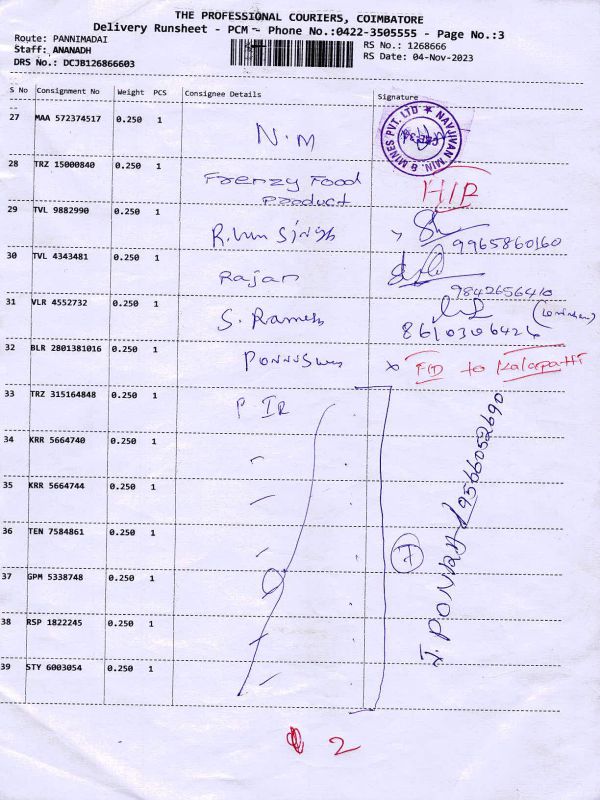 THE PROFESSIONAL COURIERS, COIMBATORE
Delivery Runsheet - PCM - Phone No.:0422-3505555 - Page No.:3
Route: PANNIMADAI RS No.: 1268666
Staff: ANANADH RS Date: 04-Nov-2023
DRS No.: DCJB126866603
S No Consignment No Weight PCS Consignee Details Signature
27 MAA 572374517 0.250 1 N.M NAVJIVAN MIN. & MINES PVT. LTD ★
28 TRZ 15000840 0.250 1 Frenzy Food
Product
29 TVL 9882990 0.250 1 9965860160
30 TVL 4343481 0.250 1 Rajan 9842656410
31 VLR 4552732 0.250 1 S. Ramesh 8610306426
32 BLR 2801381016 0.250 1 x to Kalapatti
33 TRZ 315164848 0.250 1 P. IR
34 KRR 5664740 0.250 1
35 KRR 5664744 0.250 1
36 TEN 7584861 0.250 1
37 GPM 5338748 0.250 1
38 RSP 1822245 0.250 1
39 STY 6003054 0.250 1
7
9566052690
2